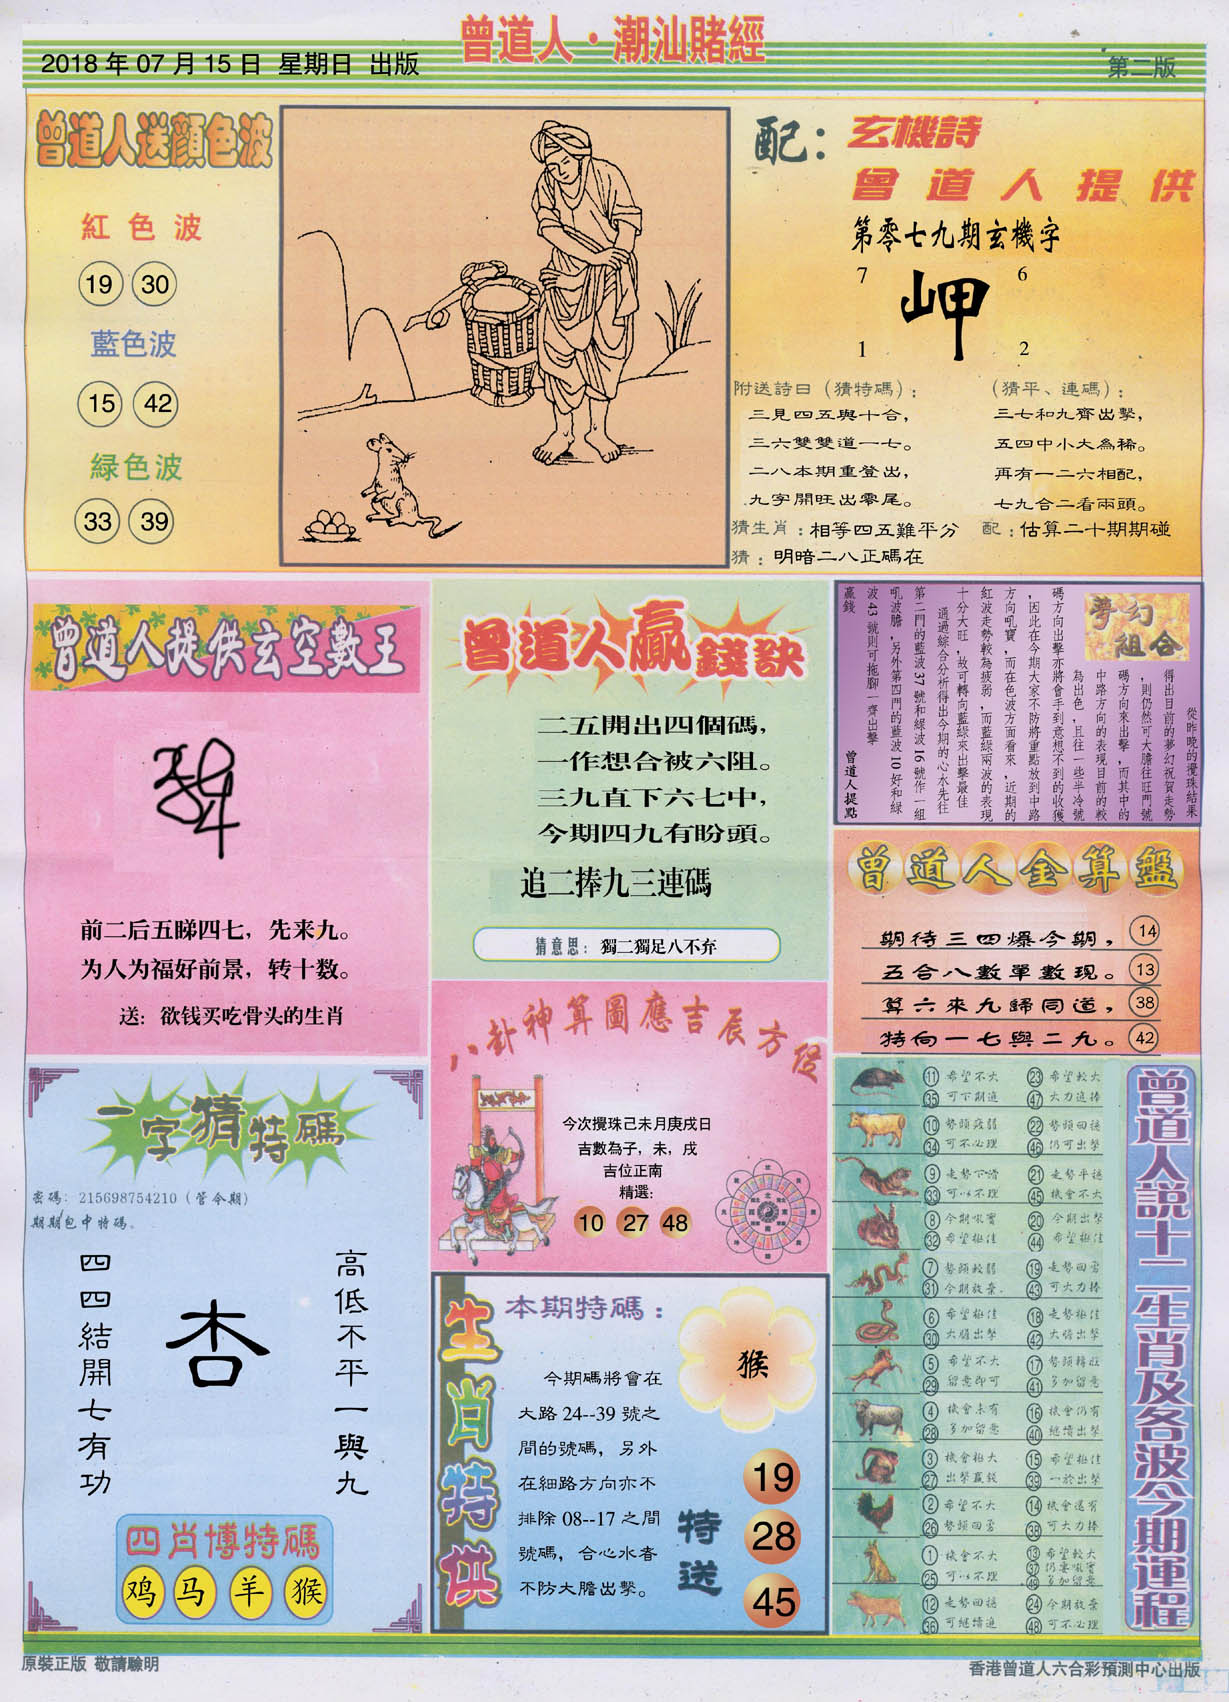 曾道人·潮汕賭經
2018年07月15日 星期日 出版
第二版
曾道人送顏色波
紅色波
19 30
藍色波
15 42
綠色波
33 39
配：玄機詩
曾道人提供
第零七九期玄機字
7 6
岬
1 2
附送詩曰（猜特碼）：
三見四五與十合，
三六雙雙道一七。
二八本期重登出，
九字開旺出零尾。
（猜平、連碼）：
三七和九齊出擊，
五四中小大為稀。
再有一二六相配，
七九合二看兩頭。
猜生肖：相等四五難平分
配：估算二十期期碰
猜：明暗二八正碼在
曾道人提供玄空數王
前二后五睇四七，先来九。
为人为福好前景，转十数。
送：欲钱买吃骨头的生肖
曾道人贏錢訣
二五開出四個碼，
一作想合被六阻。
三九直下六七中，
今期四九有盼頭。
追二捧九三連碼
猜意思：獨二獨足八不弃
夢幻
組合
從昨晚的攪珠結果
得出目前的夢幻祝賀走勢
，則仍然可大膽往旺門號
碼方向來出擊，而其中的
中路方向的表現目前的較
為出色，且往一些半冷號
碼方向出擊亦將會手到意想不到的收獲
，因此在今期大家不防將重點放到中路
方向吼寶，而在色波方面看來，近期的
紅波走勢較為疲弱，而藍綠兩波的表現
十分大旺，故可轉向藍綠來出擊最佳
通過綜合分析得出今期的心水先往
第二門的藍波37號和綠波16號作一組
吼波膽，另外第四門的藍波10好和綠
波43號則可拖腳一齊出擊
贏錢
曾道人提點
曾道人金算盤
期待三四爆今期， 14
五合八數單數現。 13
算六來九歸同道， 38
特向一七與二九。 42
八卦神算圖應吉辰方位
今次攪珠己未月庚戌日
吉數為子，未，戌
吉位正南
精選：
10 27 48
一字猜特碼
密碼：215698754210（管令期）
期期包中特碼。
高低不平一與九
杏
四四結開七有功
四肖博特碼
鸡 马 羊 猴
生肖特供
本期特碼：
猴
今期碼將會在
大路24--39號之
間的號碼，另外
在細路方向亦不
排除08--17之間
號碼，合心水者
不防大膽出擊。
特送
19
28
45
曾道人說十二生肖及各波今期運程
11 希望不大 23 希望較大
35 可下期追 47 大力追捧
10 勢頭疲弱 22 勢頭回穩
34 可不必理 46 仍可出擊
9 走勢下滑 21 走勢平穩
33 可以不理 45 機會不大
8 今期吼寶 20 今期出擊
32 希望極佳 44 希望極佳
7 勢頭較弱 19 走勢回勇
31 今期放棄 43 可大力捧
6 希望極佳 18 走勢極佳
30 大膽出擊 42 大膽出擊
5 希望不大 17 勢頭轉旺
29 留意即可 41 多加留意
4 機會未有 16 機會仍有
28 多加留意 40 繼續出擊
3 機會極大 15 希望極佳
27 出擊贏錢 39 一於出擊
2 希望不大 14 機會還有
26 勢頭回勇 38 可大力捧
1 機會不大 13 希望較大
25 可以不理 37 仍要吼實
49 多加留意
12 走勢回穩 24 今期放棄
36 可繼續追 48 可不必理
原裝正版 敬請驗明
香港曾道人六合彩預測中心出版